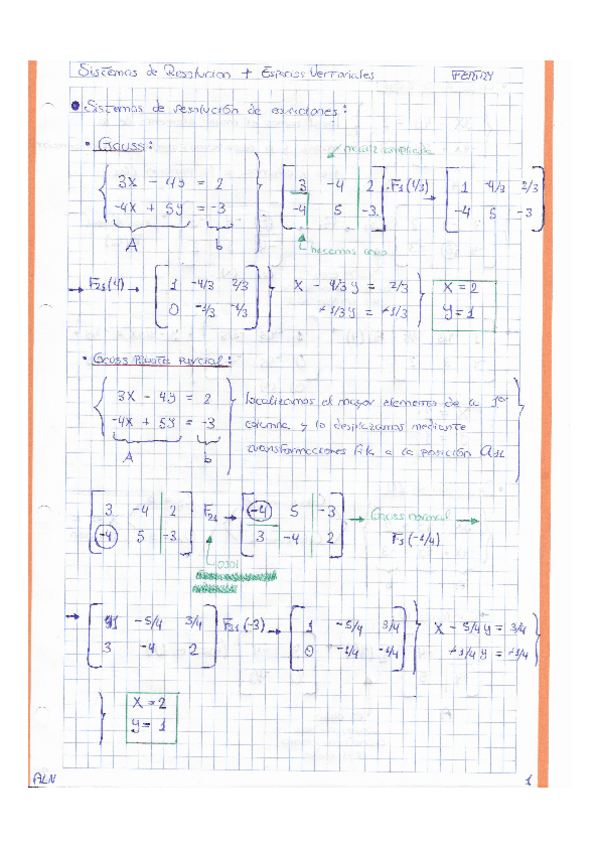 Sistemas de Resolucion + Espacios Vectoriales
• Sistemas de resolución de ecuaciones:
• Gauss:
matriz ampliada
3x - 4y = 2
-4x + 5y = -3
A b
3 -4 2
-4 5 -3
F1(1/3)
1 -4/3 2/3
-4 5 -3
hacemos cero
F21(4)
1 -4/3 2/3
0 -1/3 -1/3
x - 4/3y = 2/3
+1/3y = +1/3
x = 2
y = 1
• Gauss Pivote parcial:
3x - 4y = 2
-4x + 5y = -3
A b
localizamos el mayor elemento de a 1er
columna y lo desplazamos mediante
transformaciones fila a la posición a11
3 -4 2
-4 5 -3
F21
-4 5 -3
3 -4 2
Gauss normal
F1(-1/4)
OJO!
1 -5/4 3/4
3 -4 2
F21(-3)
1 -5/4 3/4
0 -1/4 -1/4
x - 5/4y = 3/4
+1/4y = +1/4
x = 2
y = 1
ALN 1